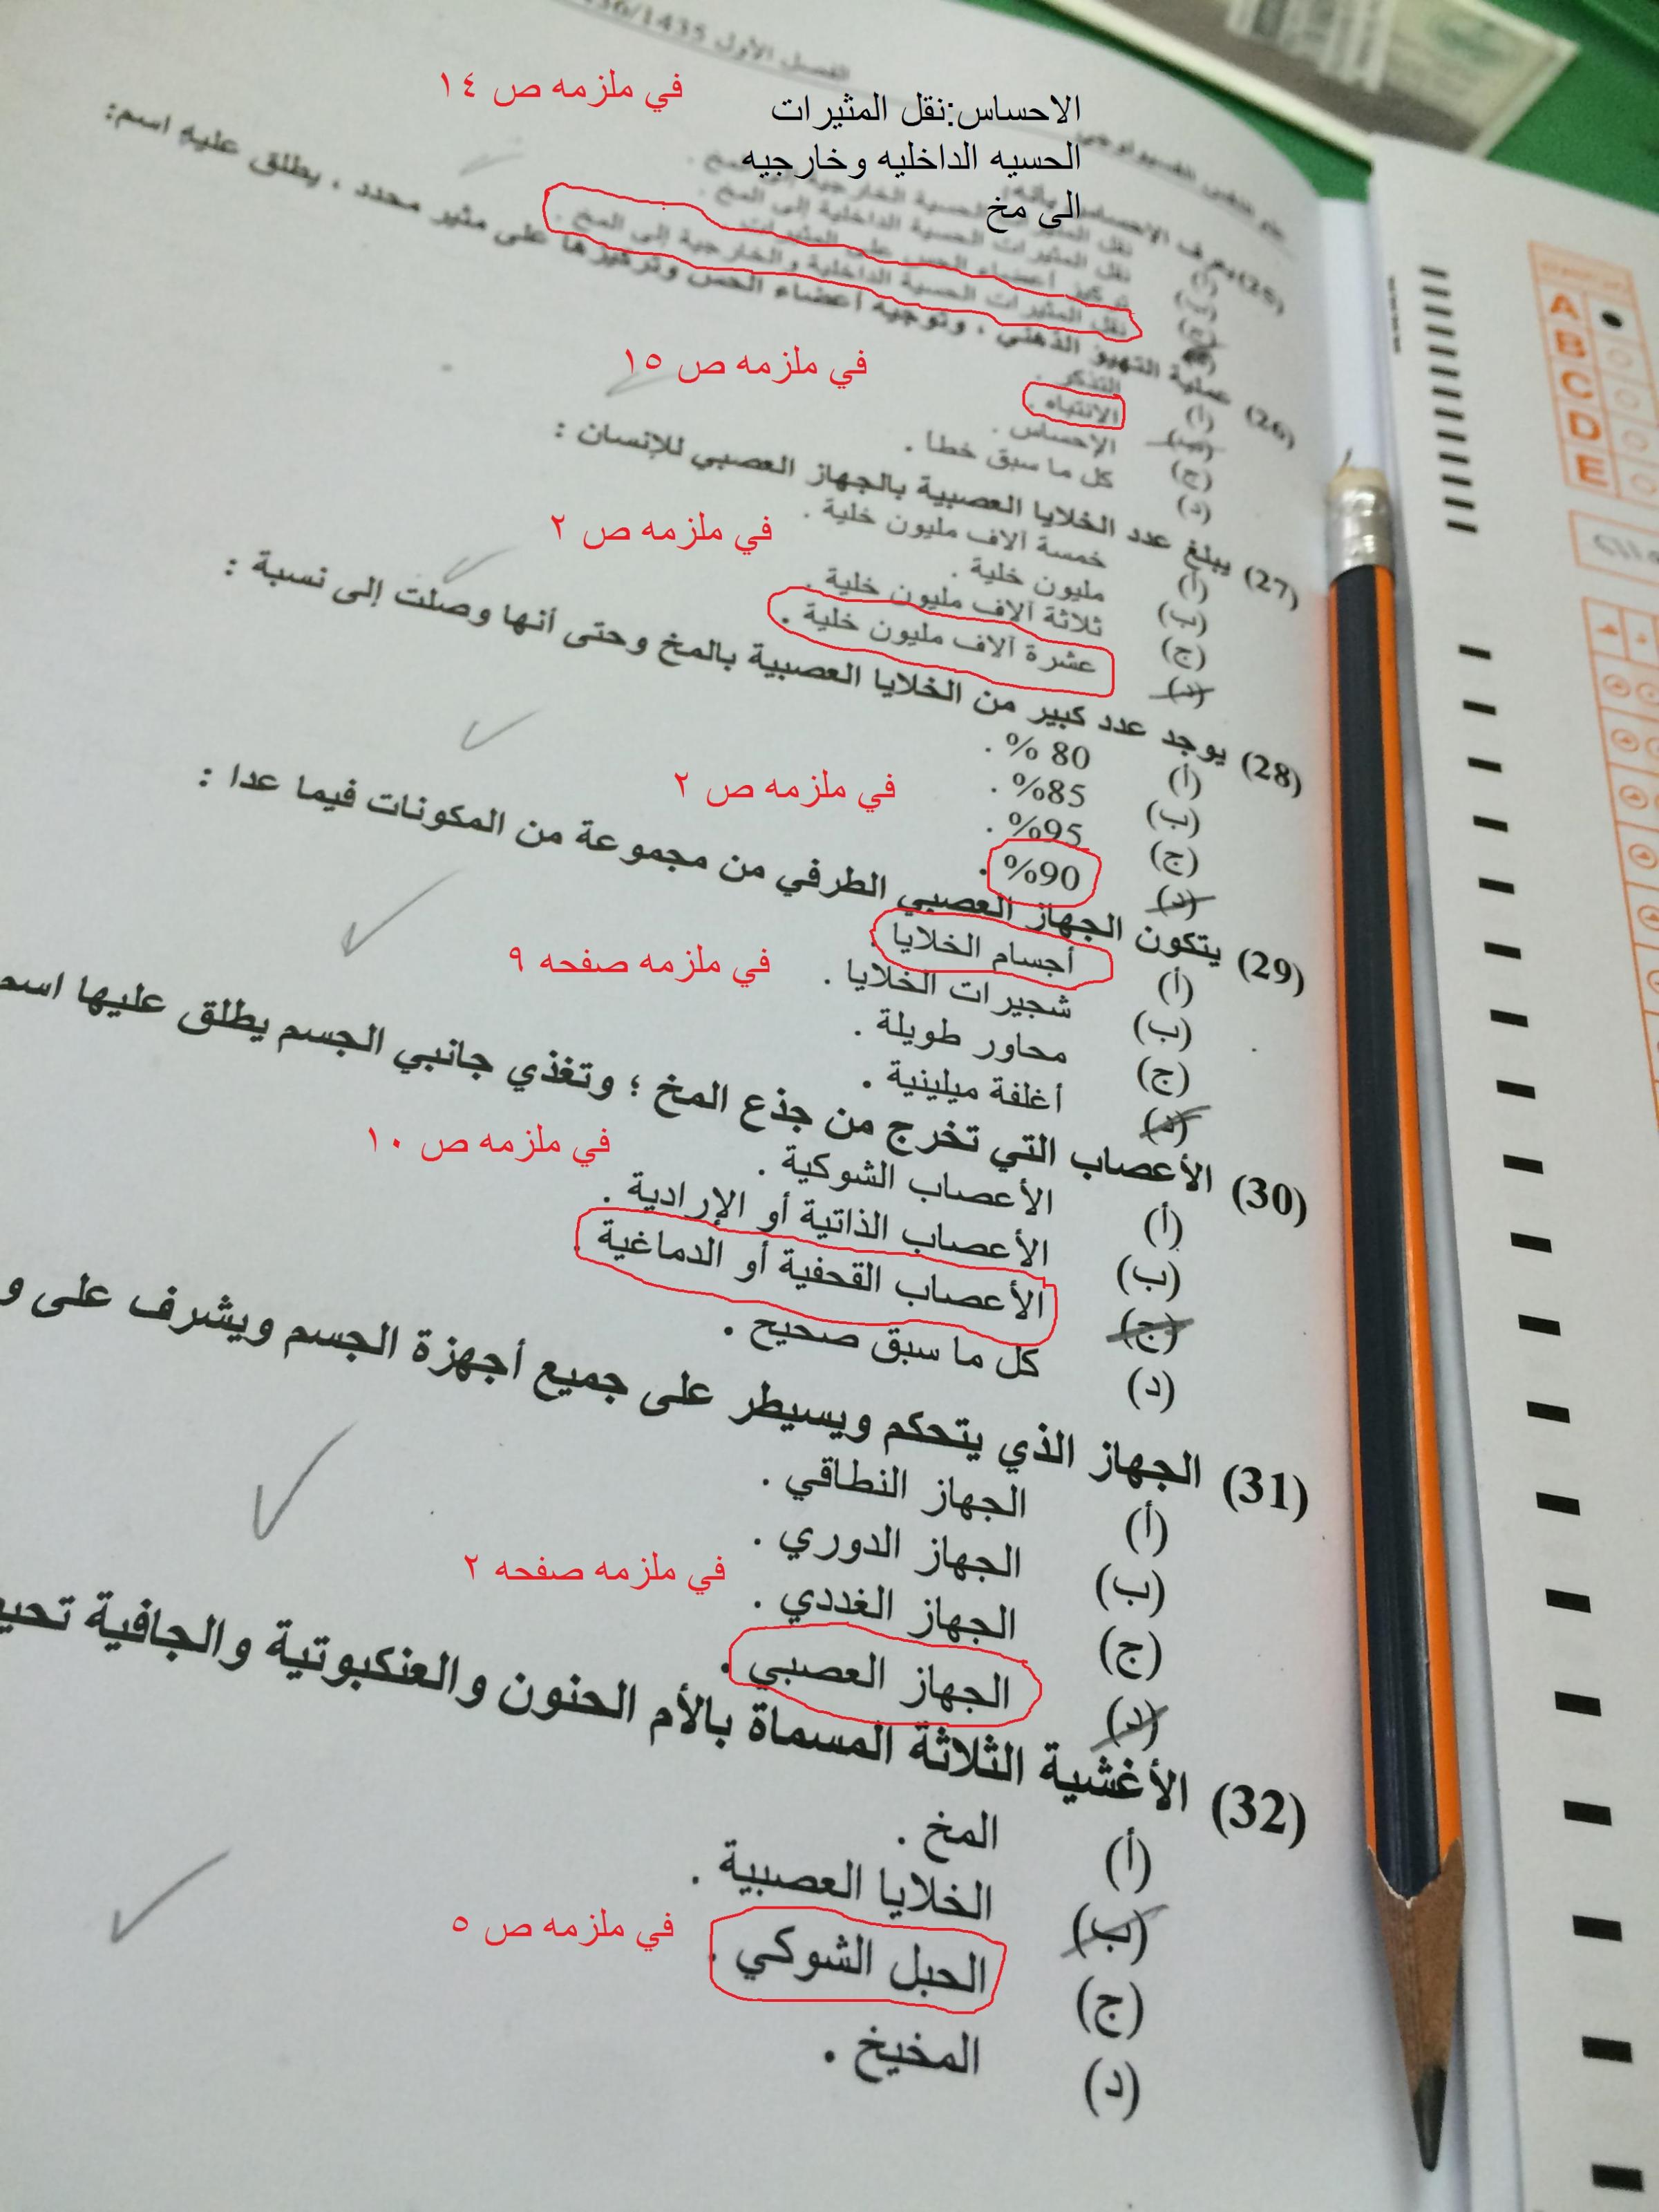 الفصل الأول 1436/1435
علم النفس الفسيولوجي
في ملزمه ص ١٤
الاحساس:نقل المثيرات
الحسيه الداخليه وخارجيه
الى مخ
(25) يعرف الإحساس بأنه:
(أ) نقل المثيرات الحسية الخارجية إلى المخ .
(ب) نقل المثيرات الحسية الداخلية إلى المخ .
(ج) تركيز أعضاء الحس على المثيرات .
(د) نقل المثيرات الحسية الداخلية والخارجية إلى المخ .
(26) عملية التهيؤ الذهني ، وتوجيه أعضاء الحس وتركيزها على مثير محدد ، يطلق عليه اسم:
(أ) التذكر .
في ملزمه ص ١٥
(ب) الانتباه .
(ج) الإحساس .
(د) كل ما سبق خطا .
(27) يبلغ عدد الخلايا العصبية بالجهاز العصبي للإنسان :
(أ) خمسة آلاف مليون خلية .
في ملزمه ص ٢
(ب) مليون خلية .
(ج) ثلاثة آلاف مليون خلية .
(د) عشرة آلاف مليون خلية .
(28) يوجد عدد كبير من الخلايا العصبية بالمخ وحتى أنها وصلت إلى نسبة :
(أ) 80 % .
(ب) 85% .
في ملزمه ص ٢
(ج) 95% .
(د) 90% .
(29) يتكون الجهاز العصبي الطرفي من مجموعة من المكونات فيما عدا :
(أ) أجسام الخلايا .
في ملزمه صفحه ٩
(ب) شجيرات الخلايا .
(ج) محاور طويلة .
(د) أغلفة ميلينية .
(30) الأعصاب التي تخرج من جذع المخ ؛ وتغذي جانبي الجسم يطلق عليها
(أ) الأعصاب الشوكية .
في ملزمه ص ١٠
(ب) الأعصاب الذاتية أو الإرادية .
(ج) الأعصاب القحفية أو الدماغية .
(د) كل ما سبق صحيح .
(31) الجهاز الذي يتحكم ويسيطر على جميع أجهزة الجسم ويشرف على
(أ) الجهاز النطاقي .
(ب) الجهاز الدوري .
في ملزمه صفحه ٢
(ج) الجهاز الغددي .
(د) الجهاز العصبي .
(32) الأغشية الثلاثة المسماة بالأم الحنون والعنكبوتية والجافية
(أ) المخ .
(ب) الخلايا العصبية .
في ملزمه ص ٥
(ج) الحبل الشوكي .
(د) المخيخ .
A
B
C
D
E